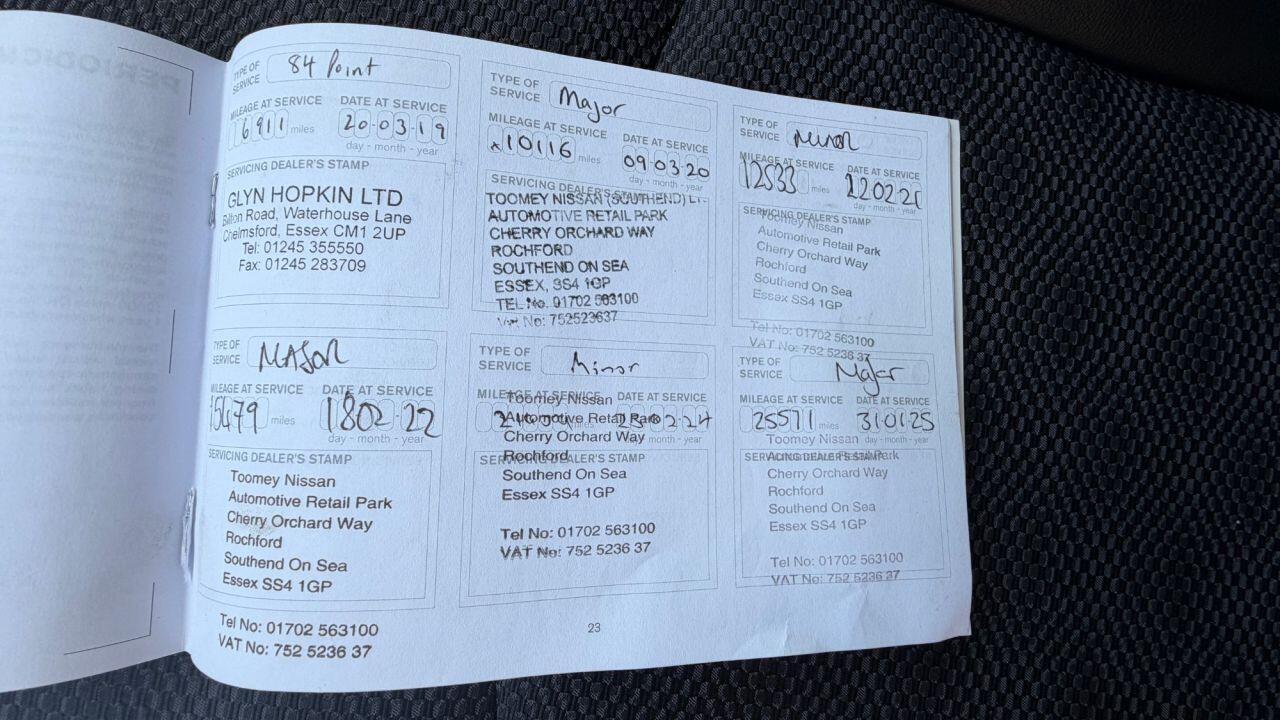 TYPE OF SERVICE 84 Point
MILEAGE AT SERVICE DATE AT SERVICE
6911 miles 20-03-19
day - month - year
SERVICING DEALER'S STAMP
GLYN HOPKIN LTD
Road, Waterhouse Lane
Chelmsford, Essex CM1 2UP
Tel: 01245 355550
Fax: 01245 283709
TYPE OF SERVICE Major
MILEAGE AT SERVICE DATE AT SERVICE
10116 miles 09-03-20
day - month - year
SERVICING DEALER'S STAMP
TOOMEY NISSAN (SOUTHEND)
AUTOMOTIVE RETAIL PARK
CHERRY ORCHARD WAY
ROCHFORD
SOUTHEND ON SEA
ESSEX, SS4 1GP
TEL No. 01702 563100
Vat No: 752523637
TYPE OF SERVICE Minor
MILEAGE AT SERVICE DATE AT SERVICE
12533 miles
day - month - year
SERVICING DEALER'S STAMP
Toomey Nissan
Automotive Retail Park
Cherry Orchard Way
Rochford
Southend On Sea
Essex SS4 1GP
Tel No: 01702 563100
VAT No: 752 5236 37
TYPE OF SERVICE MAJOR
MILEAGE AT SERVICE DATE AT SERVICE
15479 miles 18 02 22
day - month - year
SERVICING DEALER'S STAMP
Toomey Nissan
Automotive Retail Park
Cherry Orchard Way
Rochford
Southend On Sea
Essex SS4 1GP
Tel No: 01702 563100
VAT No: 752 5236 37
TYPE OF SERVICE Minor
MILEAGE AT SERVICE DATE AT SERVICE
miles
month - year
SERVICING DEALER'S STAMP
Toomey Nissan
Automotive Retail Park
Cherry Orchard Way
Rochford
Southend On Sea
Essex SS4 1GP
Tel No: 01702 563100
VAT No: 752 5236 37
TYPE OF SERVICE Major
MILEAGE AT SERVICE DATE AT SERVICE
25571 miles 31-01-25
day - month - year
SERVICING DEALER'S STAMP
Toomey Nissan
Automotive Retail Park
Cherry Orchard Way
Rochford
Southend On Sea
Essex SS4 1GP
Tel No: 01702 563100
VAT No: 752 5236 37
23